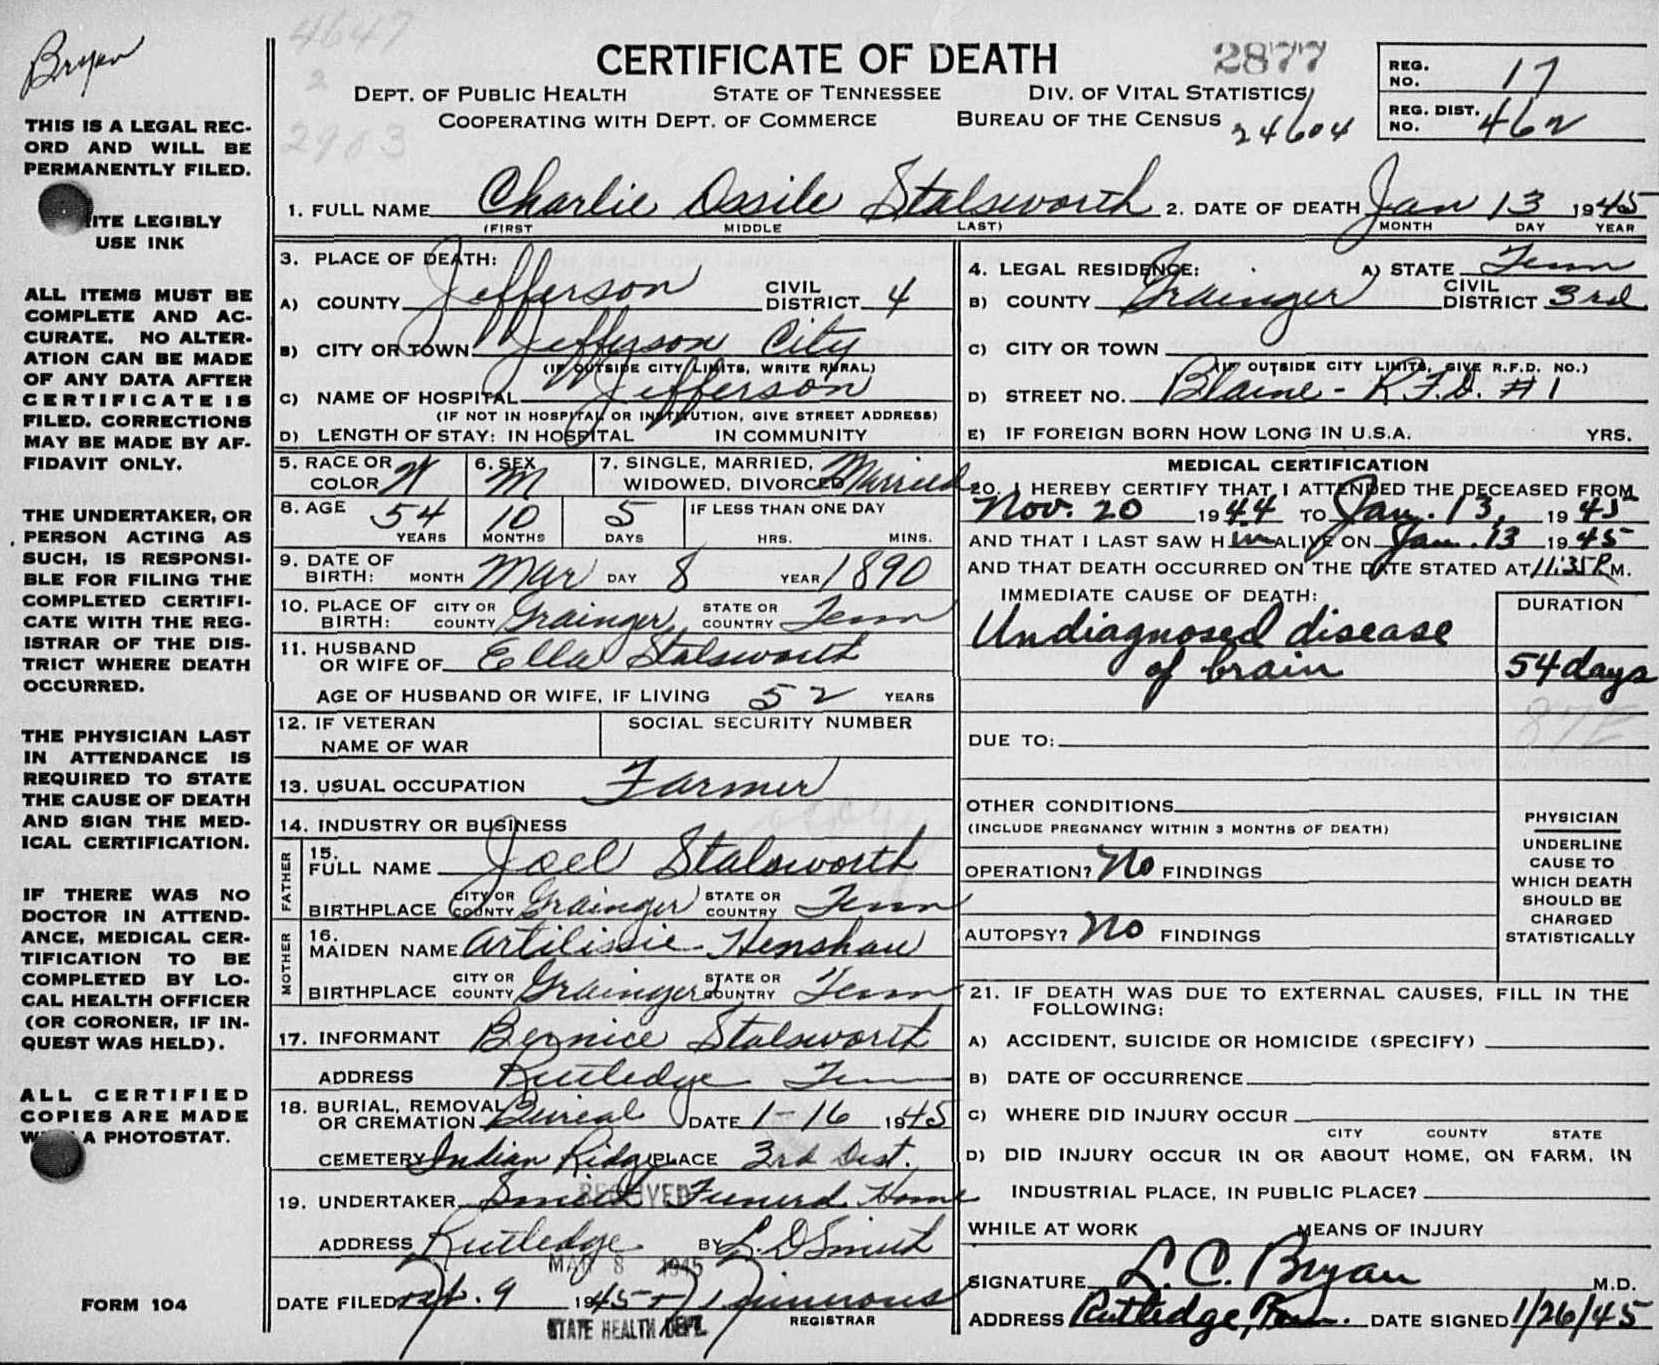 Bryan
4647
2
2903
CERTIFICATE OF DEATH
2877
DEPT. OF PUBLIC HEALTH STATE OF TENNESSEE DIV. OF VITAL STATISTICS
COOPERATING WITH DEPT. OF COMMERCE BUREAU OF THE CENSUS 24604
REG. NO. 17
REG. DIST. NO. 462
THIS IS A LEGAL REC-
ORD AND WILL BE
PERMANENTLY FILED.
ITE LEGIBLY
USE INK
ALL ITEMS MUST BE
COMPLETE AND AC-
CURATE. NO ALTER-
ATION CAN BE MADE
OF ANY DATA AFTER
CERTIFICATE IS
FILED. CORRECTIONS
MAY BE MADE BY AF-
FIDAVIT ONLY.
THE UNDERTAKER, OR
PERSON ACTING AS
SUCH, IS RESPONSI-
BLE FOR FILING THE
COMPLETED CERTIFI-
CATE WITH THE REG-
ISTRAR OF THE DIS-
TRICT WHERE DEATH
OCCURRED.
THE PHYSICIAN LAST
IN ATTENDANCE IS
REQUIRED TO STATE
THE CAUSE OF DEATH
AND SIGN THE MED-
ICAL CERTIFICATION.
IF THERE WAS NO
DOCTOR IN ATTEND-
ANCE, MEDICAL CER-
TIFICATION TO BE
COMPLETED BY LO-
CAL HEALTH OFFICER
(OR CORONER, IF IN-
QUEST WAS HELD).
ALL CERTIFIED
COPIES ARE MADE
A PHOTOSTAT.
FORM 104
1. FULL NAME Charlie Ossile Stalsworth 2. DATE OF DEATH Jan 13 1945
(FIRST MIDDLE LAST) MONTH DAY YEAR
3. PLACE OF DEATH:
A) COUNTY Jefferson CIVIL DISTRICT 4
B) CITY OR TOWN Jefferson City
(IF OUTSIDE CITY LIMITS, WRITE RURAL)
C) NAME OF HOSPITAL Jefferson
(IF NOT IN HOSPITAL OR INSTITUTION, GIVE STREET ADDRESS)
D) LENGTH OF STAY: IN HOSPITAL IN COMMUNITY
4. LEGAL RESIDENCE: A) STATE Tenn
B) COUNTY Grainger CIVIL DISTRICT 3rd
C) CITY OR TOWN
(IF OUTSIDE CITY LIMITS, GIVE R.F.D. NO.)
D) STREET NO. Blaine - R.F.D. #1
E) IF FOREIGN BORN HOW LONG IN U.S.A. YRS.
5. RACE OR COLOR W 6. SEX M 7. SINGLE, MARRIED, WIDOWED, DIVORCED Married
8. AGE 54 10 5 IF LESS THAN ONE DAY
YEARS MONTHS DAYS HRS. MINS.
9. DATE OF BIRTH: MONTH Mar DAY 8 YEAR 1890
10. PLACE OF BIRTH: CITY OR COUNTY Grainger STATE OR COUNTRY Tenn
11. HUSBAND OR WIFE OF Ella Stalsworth
AGE OF HUSBAND OR WIFE, IF LIVING 52 YEARS
12. IF VETERAN NAME OF WAR SOCIAL SECURITY NUMBER
13. USUAL OCCUPATION Farmer
14. INDUSTRY OR BUSINESS
FATHER
15. FULL NAME Joel Stalsworth
BIRTHPLACE CITY OR COUNTY Grainger STATE OR COUNTRY Tenn
MOTHER
16. MAIDEN NAME Artilissie Henshaw
BIRTHPLACE CITY OR COUNTY Grainger STATE OR COUNTRY Tenn
17. INFORMANT Bernice Stalsworth
ADDRESS Rutledge Tenn
18. BURIAL, REMOVAL OR CREMATION Buireal DATE 1-16 1945
CEMETERY Indian Ridge PLACE 3rd Dist.
19. UNDERTAKER Smith Funerd Home
RECEIVED
ADDRESS Rutledge BY L. D Smith
MAR 8 1945
DATE FILED 9 1945
REGISTRAR
STATE HEALTH DEPT.
MEDICAL CERTIFICATION
20. I HEREBY CERTIFY THAT I ATTENDED THE DECEASED FROM
Nov. 20 1944 TO Jan. 13, 1945
AND THAT I LAST SAW HIM ALIVE ON Jan. 13 1945
AND THAT DEATH OCCURRED ON THE DATE STATED AT 11:35 P.M.
IMMEDIATE CAUSE OF DEATH: DURATION
Undiagnosed disease
of brain 54 days
87E
DUE TO:
OTHER CONDITIONS
(INCLUDE PREGNANCY WITHIN 3 MONTHS OF DEATH)
OPERATION? No FINDINGS
AUTOPSY? No FINDINGS
PHYSICIAN
UNDERLINE
CAUSE TO
WHICH DEATH
SHOULD BE
CHARGED
STATISTICALLY
21. IF DEATH WAS DUE TO EXTERNAL CAUSES, FILL IN THE
FOLLOWING:
A) ACCIDENT, SUICIDE OR HOMICIDE (SPECIFY)
B) DATE OF OCCURRENCE
C) WHERE DID INJURY OCCUR
CITY COUNTY STATE
D) DID INJURY OCCUR IN OR ABOUT HOME, ON FARM, IN
INDUSTRIAL PLACE, IN PUBLIC PLACE?
WHILE AT WORK MEANS OF INJURY
SIGNATURE L. C. Bryan M.D.
ADDRESS Rutledge, Tenn. DATE SIGNED 1/26/45